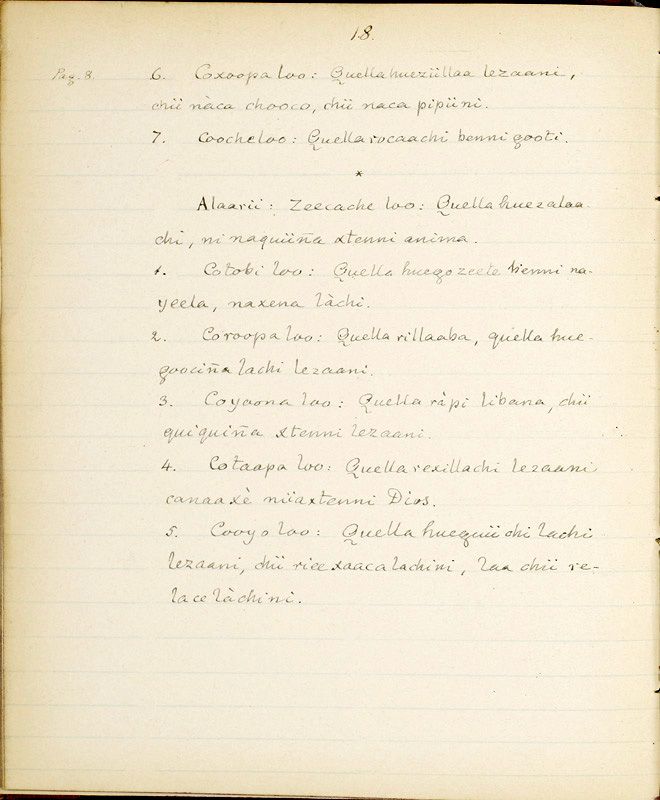 18.
Pag. 8.
6. Coxoopa loo: Quella huezüllaa lezaani,
chii nàca chooco, chii naca pipiini.
7. Coocheloo: Quella rocaachi benni gooti.
*
Alaarii: Zeecache loo: Quella huezalaa
chi, ni naquiiña xtenni anima.
1. Cotobi loo: Quella huegozeete bienni na-
yeela, naxena làchi.
2. Coroopa loo: Quella rillaaba, quella hue-
goociña lachi lezaani.
3. Coyoona loo: Quella ràpi libana, chii
quiquiña xtenni lezaani.
4. Cotaapa loo: Quella rexillachi lezaani
canaaxè niiaxtenni Dios.
5. Cooyo loo: Quella hueguii chi lachi
lezaani, chii ricexaaca lachini, laa chii re-
lace làchini.